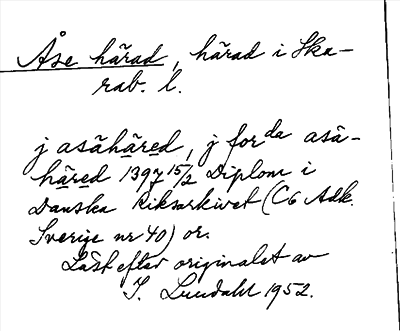 Åse härad, härad i Ska-
rab. l.
j asähäred, j forda asä-
häred 1397 15/2 Diplom i
Danska Riksarkivet (C6 Adk.
Sverige nr 40) or.
Läst efter originalet av
I. Lundahl 1952.